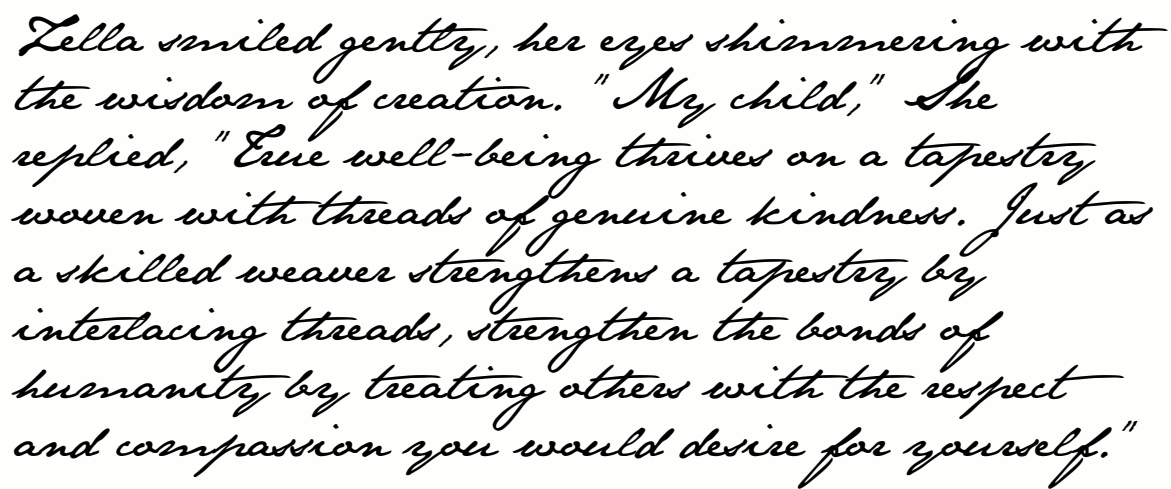 Zella smiled gently, her eyes shimmering with
the wisdom of creation. "My child," She
replied, "True well-being thrives on a tapestry
woven with threads of genuine kindness. Just as
a skilled weaver strengthens a tapestry by
interlacing threads, strengthen the bonds of
humanity by treating others with the respect
and compassion you would desire for yourself."